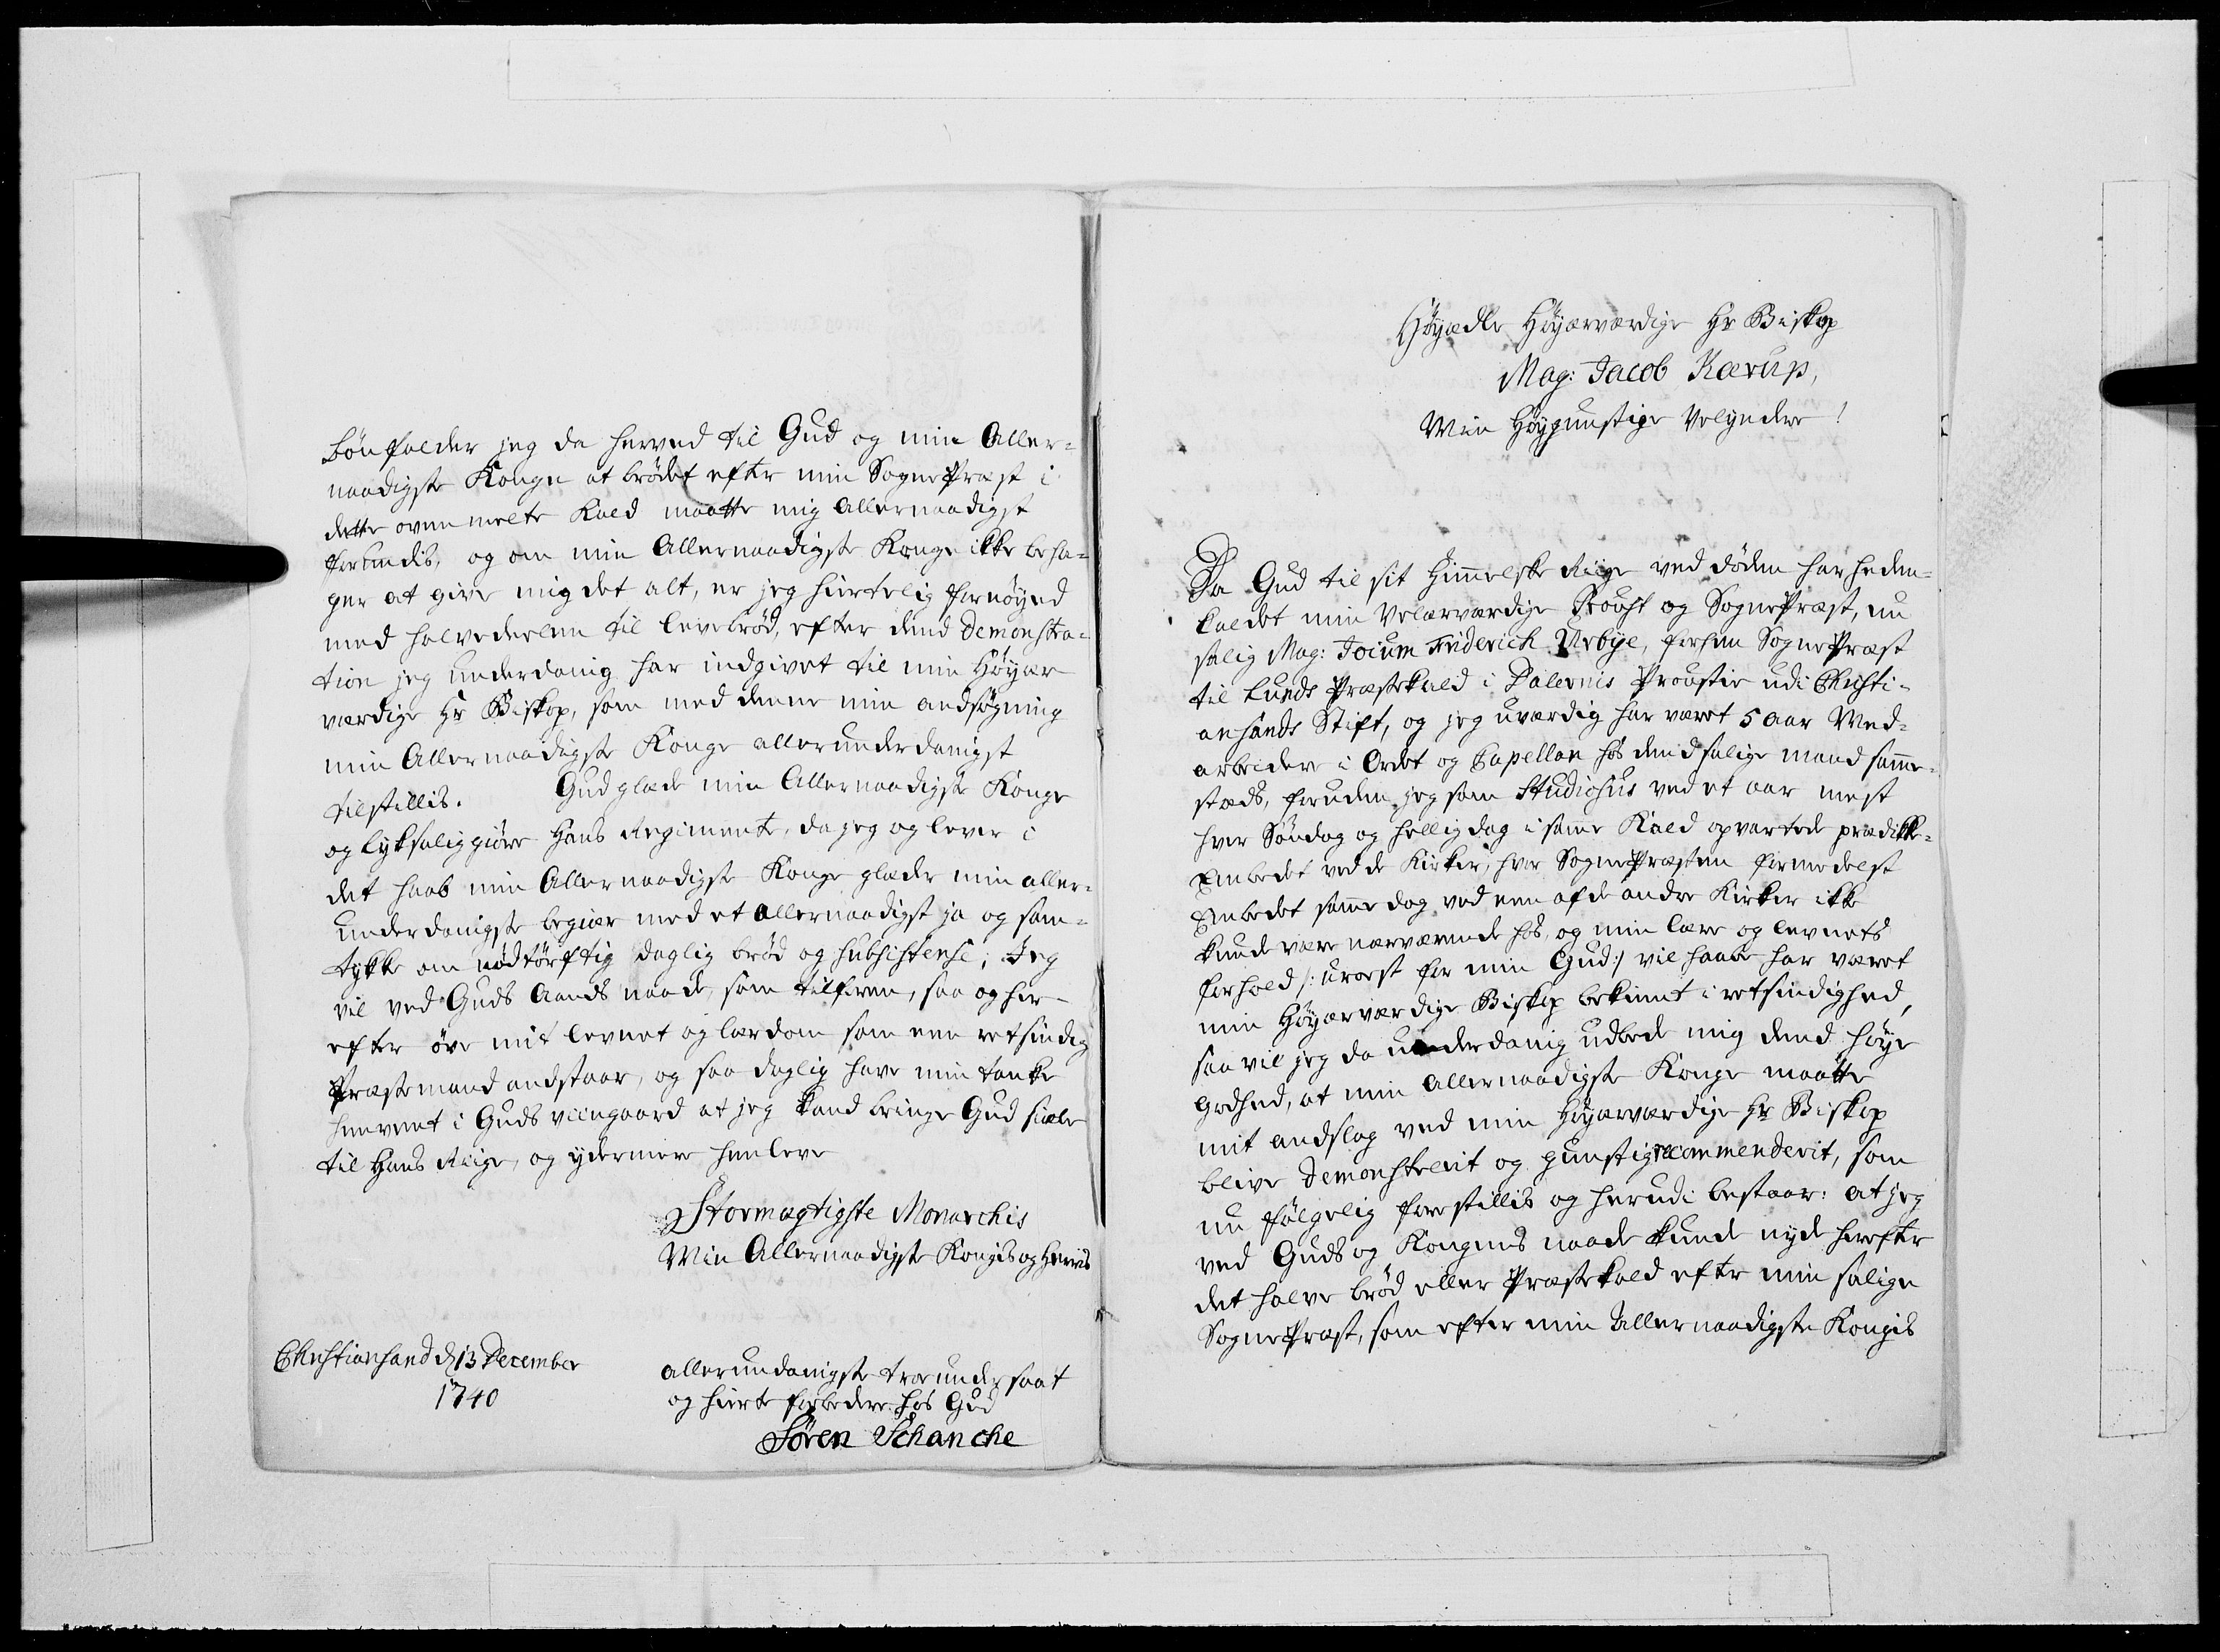 bönfalder jeg da herved til Gud og min Aller-
naadigste Konge at brödet efter min SognePræst i
dette ovenmelte Kald maatte mig Allernaadigst
forundis, og om min Allernaadigste Konge ikke beha-
ger at give mig det alt, er jeg hiertelig fornöyed
med halvedeelen til levebröd, efter dend Demonstra-
tion jeg underdanig har indgivet til min Höyær-
værdige Hr Biskop, som med denne min andsögning
min Allernaadigste Konge allerunderdanigst
tilstillis. Gud glæde min Allernaadigste Konge
og lyksaliggiöre Hans Regimente, da jeg og lever i
det haab min Allernaadigste Konge glæder min aller-
underdanigste begiær med et allernaadigst ja og sam-
tykke om nödtörftig daglig bröd og subsistense; Jeg
vil ved Guds Aands naade, som tilforn, saa og her-
efter öve mit levnet og lærdom som een retsindig
Præstemand andstaar, og saa daglig have min tanke
henvent i Guds viingaard at jeg kand bringe Gud siæle
til Hans Riige, og ydermere henleve
Stormægtigste Monarchis
Min Allernaadigste Kongis og Herris
Christiansand d 13 December
1740
allerundanigste troe undersaat
og hierte forbedere hos Gud
Sören Schanche
Höyædle Höyærværdige Hr Biskop
Mag: Jacob Kærup,
Min Höygunstige Velyndere!
Da Gud til sit Himmelske Riige ved döden har heden-
kaldet min Velærværdige Proust og SognePræst, nu
salig Mag: Jocum Friderich Urbye, forhen SognePræst
til Lunds Præstekald i Dalernis Proustie udi Christi-
ansands Stift, og jeg uværdig har været 5 aar Med-
arbeidere i Ordet og Capellan hos dend salige mand samme-
stæds, foruden jeg som Studiosus ved et aar mest
hver Söndag og hellig dag i samme Kald opvartede prædikke-
Embedet ved de Kirker, hvor SognePræsten formedelst
Embedet samme dag ved een af de andre Kirker ikke
kunde være nærværende hos, og min lære og levnets
forhold /: uroest for min Gud :/ vil haabe har været
min Höyærværdige Biskop bekient i retsindighed,
saa vil jeg da underdanig udbede mig dend höye
Godhed, at min Allernaadigste Konge maatte
mit andslag ved min Höyærværdige Hr Biskop
blive Demonstrerit og gunstig recommenderit, som
nu fölgelig forestillis og herudi bestaar: at jeg
ved Guds og Kongens naade kunde nyde herefter
det halve bröd eller Præstekald efter min salige
SognePræst, som efter min Allernaadigste Kongis